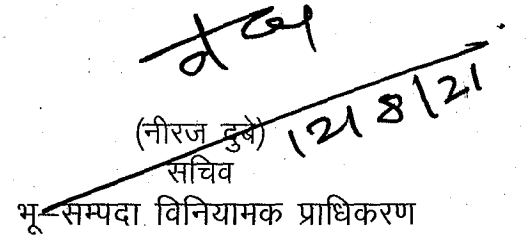 12/8/21
(नीरज दुबे)
सचिव
भू-सम्पदा विनियामक प्राधिकरण